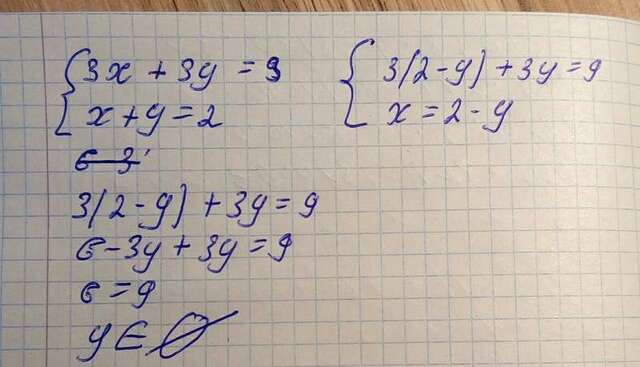 { 3x + 3y = 9
x + y = 2
{ 3(2 - y) + 3y = 9
x = 2 - y
6 - 3
3(2 - y) + 3y = 9
6 - 3y + 3y = 9
6 = 9
y ∈ ∅